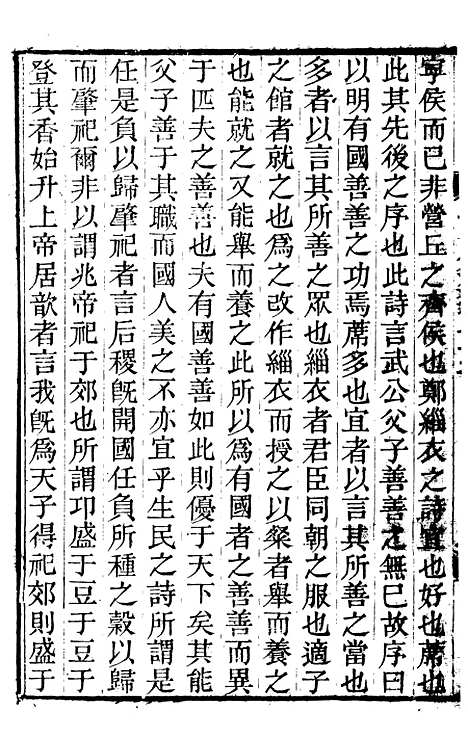 寧侯而已非營丘之齊侯也鄭緇衣之詩宜也好也蓆也
此其先後之序也此詩言武公父子善善之無已故序曰
以明有國善善之功焉蓆多也宜者以言其所善之當也
多者以言其所善之眾也緇衣者君臣同朝之服也適子
之館者就之也為之改作緇衣而授之以粲者舉而養之
也能就之又能舉而養之此所以為有國者之善善而異
于匹夫之善善也夫有國善善如此則優于天下矣其能
父子善于其職而國人美之不亦宜乎生民之詩所謂是
任是負以歸肇祀者言后稷旣開國任負所種之穀以歸
而肇祀爾非以謂兆帝祀于郊也所謂卭盛于豆于豆于
登其香始升上帝居歆者言我旣為天子得祀郊則盛于